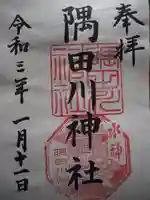 奉拝
隅田川神社
水神
令和三年 一月十一日